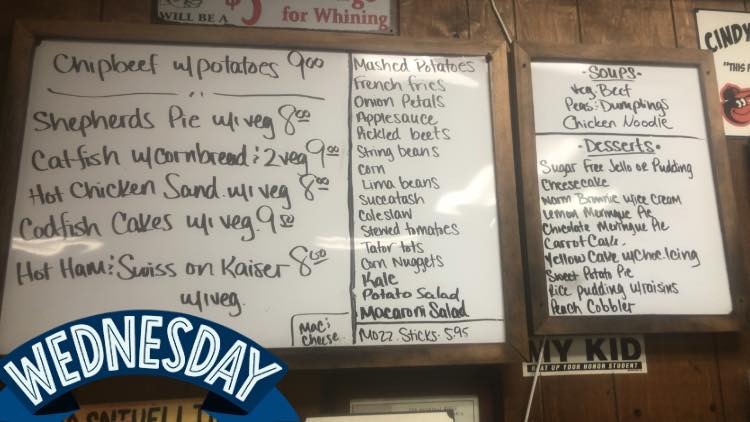 WILL BE A $5
for Whining.
Chipbeef w/potatoes 9.00
Shepherds Pie w/1 veg 8.00
Catfish w/cornbread & 2 veg 9.00
Hot Chicken Sand. w/1 veg 8.00
Codfish Cakes w/1 veg. 9.50
Hot Ham & Swiss on Kaiser 8.50
w/1 veg.
Mac &
cheese
Mashed Potatoes
French fries
Onion Petals
Applesauce
Pickled beets
String beans
Corn
Lima beans
Succatash
Coleslaw
Stewed tomatoes
Tator tots
Corn Nuggets
Kale
Potato Salad
Macaroni Salad
Mozz. Sticks. 5.95
- Soups -
Veg. Beef
Peas & Dumplings
Chicken Noodle
- Desserts -
Sugar Free Jello or Pudding
Cheesecake
Warm Brownie w/ice cream
Lemon Meringue Pie
Chocolate Meringue Pie
Carrot Cake
Yellow Cake w/Choc. Icing
Sweet Potato Pie
Rice Pudding w/raisins
Peach Cobbler
CINDY
"THIS
MY KID
BEAT UP YOUR HONOR STUDENT
WEDNESDAY